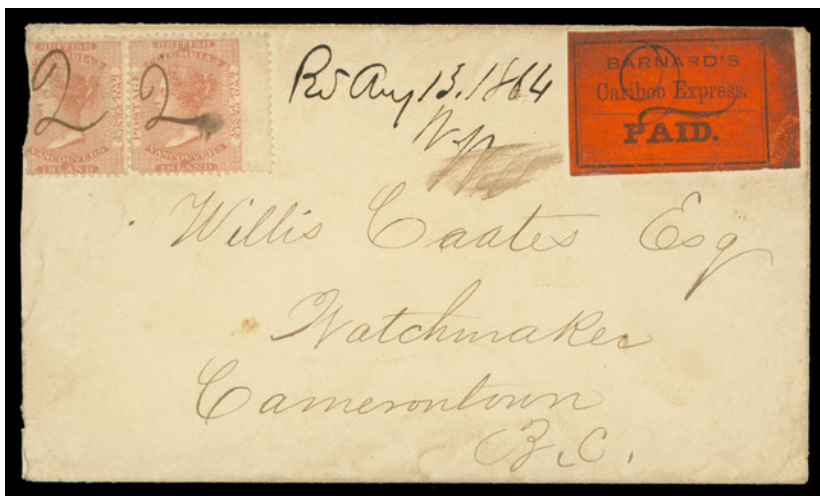 BRITISH
COLUMBIA
POSTAGE
TWO & HALF PENCE
VANCOUVERS
ISLAND
2
BRITISH
COLUMBIA
POSTAGE
VANCOUVERS
ISLAND
2
Rd Aug 13. 1864
BARNARD'S
Cariboo Express.
PAID.
2
Willis Coates Esq
Watchmaker
Camerontown
B.C.